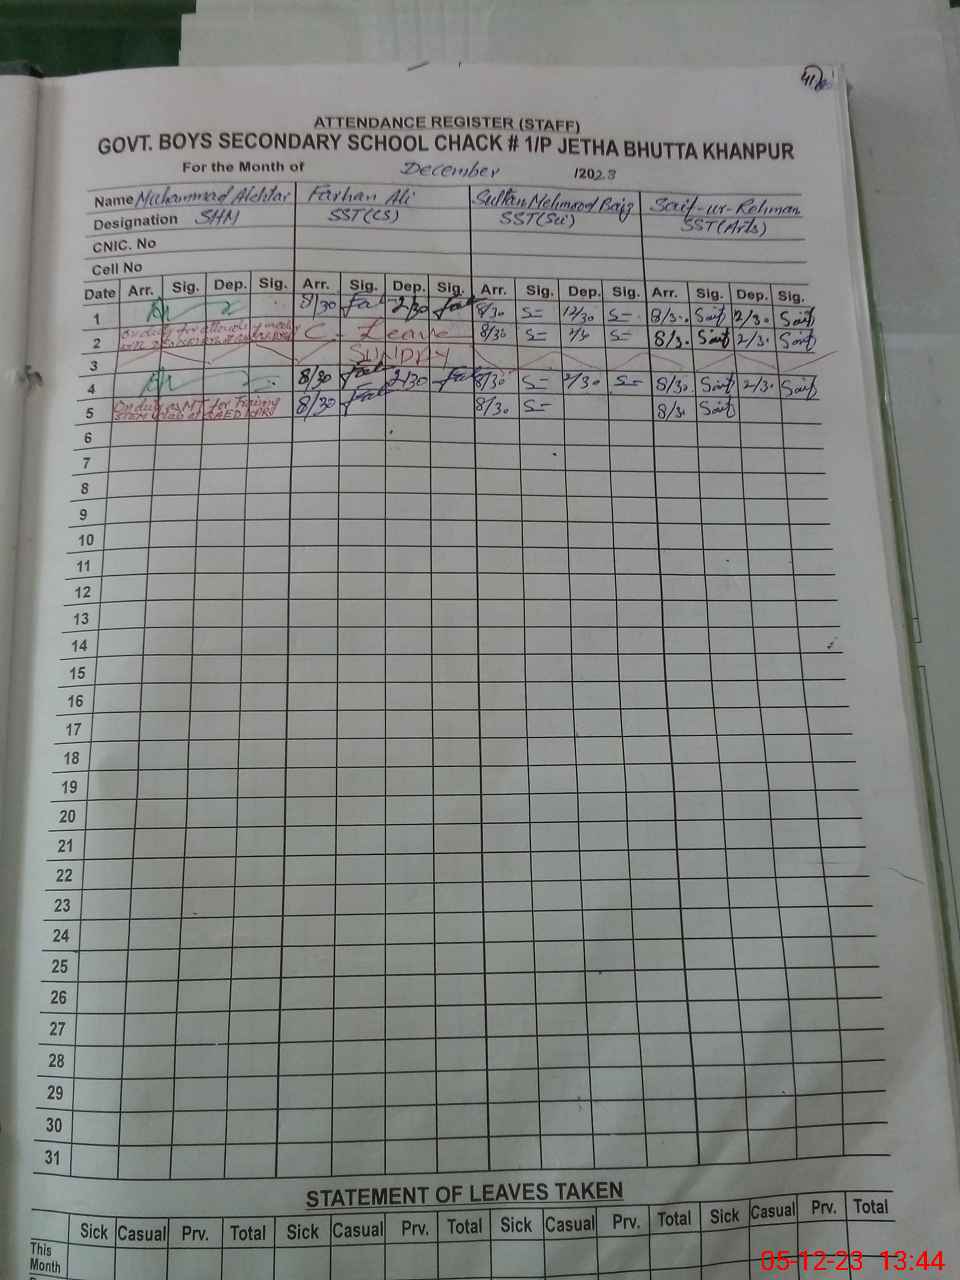 41
ATTENDANCE REGISTER (STAFF)
GOVT. BOYS SECONDARY SCHOOL CHACK # 1/P JETHA BHUTTA KHANPUR
For the Month of December /2023
Name Muhammad Akhtar Farhan Ali Sultan Mehmood Saif-ur-Rehman
Designation SHM SST(CS) SST(Sci) SST(Arts)
CNIC. No
Cell No
Date Arr. Sig. Dep. Sig. Arr. Sig. Dep. Sig. Arr. Sig. Dep. Sig. Arr. Sig. Dep. Sig.
1 8/30 2/30 8/30 S= 12/30 S= 8/30 Saif 2/30 Saif
2 On duty for C- Leave 8/30 S= S= 8/30 Saif 2/30 Saif
3 SUNDAY
4 8/30 2/30 8/30 S= 2/30 S= 8/30 Saif 2/30 Saif
5 On duty as MT for Training 8/30 8/30 S= 8/30 Saif
6
7
8
9
10
11
12
13
14
15
16
17
18
19
20
21
22
23
24
25
26
27
28
29
30
31
STATEMENT OF LEAVES TAKEN
Sick Casual Prv. Total Sick Casual Prv. Total Sick Casual Prv. Total Sick Casual Prv. Total
This
Month
05-12-23 13:44